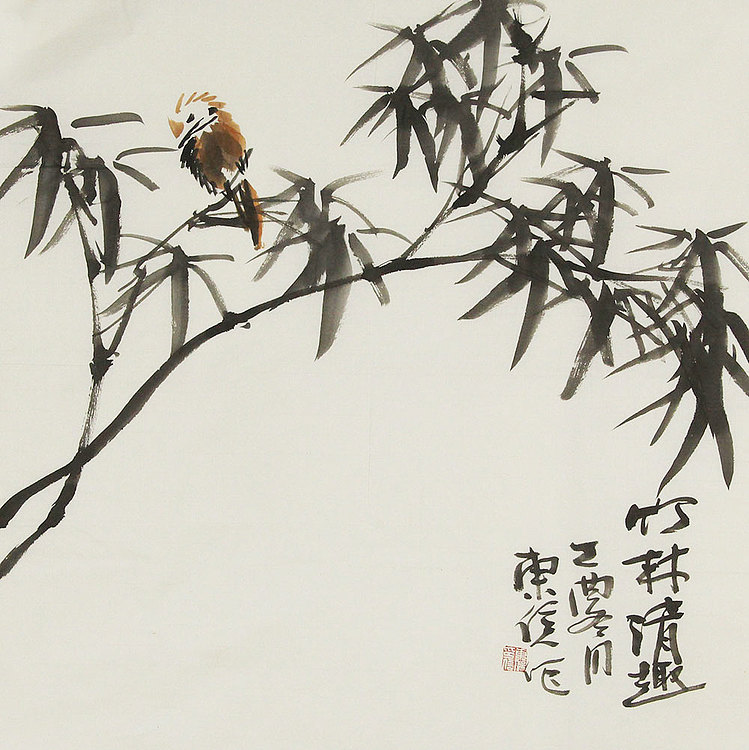 竹林清趣
乙酉冬月
東俊作